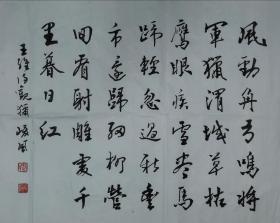 風動角弓鳴將
軍獵渭城草枯
鷹眼疾雪盡馬
蹄輕忽過新豐
市還歸細柳營
回看射雕處千
里暮日紅
王維詩觀獵